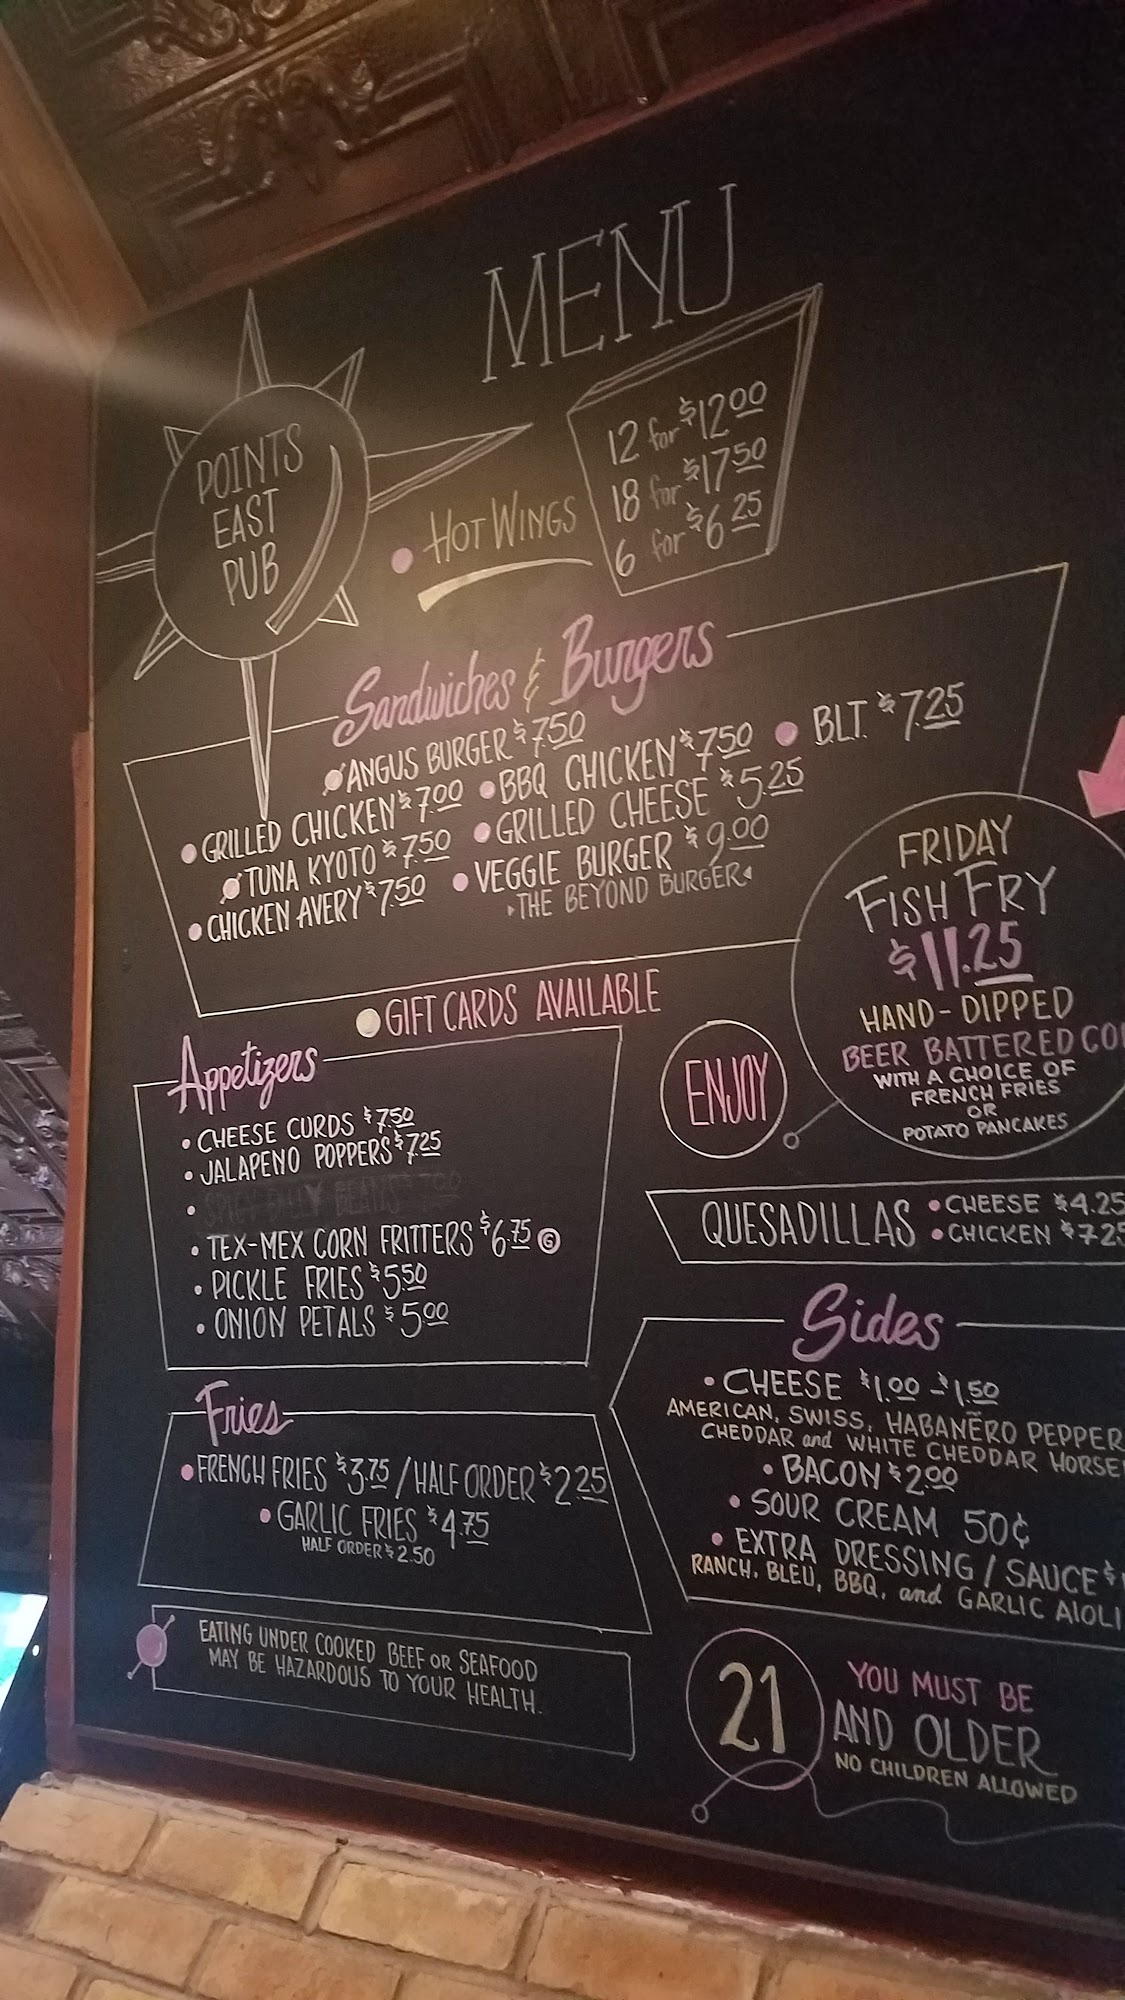 MENU
POINTS
EAST
PUB
HOT WINGS
12 for $12.00
18 for $17.50
6 for $6.25
Sandwiches & Burgers
ANGUS BURGER $7.50
GRILLED CHICKEN $7.00
TUNA KYOTO $7.50
CHICKEN AVERY $7.50
BBQ CHICKEN $7.50
GRILLED CHEESE $5.25
VEGGIE BURGER $9.00
THE BEYOND BURGER
B.L.T. $7.25
FRIDAY
FISH FRY
$11.25
HAND-DIPPED
BEER BATTERED
WITH A CHOICE OF
FRENCH FRIES
OR
POTATO PANCAKES
GIFT CARDS AVAILABLE
ENJOY
Appetizers
CHEESE CURDS $7.50
JALAPENO POPPERS $7.25
TEX-MEX CORN FRITTERS $6.75 6
PICKLE FRIES $5.50
ONION PETALS $5.00
QUESADILLAS
CHEESE $4.25
CHICKEN $7.25
Fries
FRENCH FRIES $3.75 / HALF ORDER $2.25
GARLIC FRIES $4.75
HALF ORDER $2.50
Sides
CHEESE $1.00 - $1.50
AMERICAN, SWISS, HABAÑERO PEPPER
CHEDDAR and WHITE CHEDDAR
BACON $2.00
SOUR CREAM 50¢
EXTRA DRESSING / SAUCE $
RANCH, BLEU, BBQ, and GARLIC AIOLI
EATING UNDER COOKED BEEF OR SEAFOOD
MAY BE HAZARDOUS TO YOUR HEALTH.
21
YOU MUST BE
AND OLDER
NO CHILDREN ALLOWED